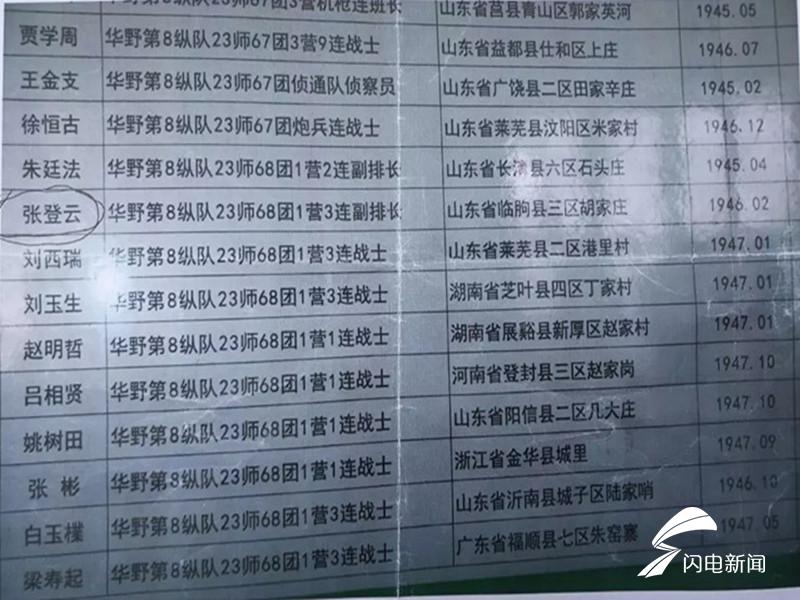 华野第8纵队23师67团3营机枪连班长 山东省莒县青山区郭家英河 1945.05
贾学周 华野第8纵队23师67团3营9连战士 山东省益都县仕和区上庄 1946.07
王金支 华野第8纵队23师67团侦通队侦察员 山东省广饶县二区田家辛庄 1945.02
徐恒古 华野第8纵队23师67团炮兵连战士 山东省莱芜县汶阳区米家村 1946.12
朱廷法 华野第8纵队23师68团1营2连副排长 山东省长清县六区石头庄 1945.04
张登云 华野第8纵队23师68团1营3连副排长 山东省临朐县三区胡家庄 1946.02
刘西瑞 华野第8纵队23师68团1营3连战士 山东省莱芜县二区港里村 1947.01
刘玉生 华野第8纵队23师68团1营3连战士 湖南省芝叶县四区丁家村 1947.01
赵明哲 华野第8纵队23师68团1营1连战士 湖南省展谿县新厚区赵家村 1947.01
吕相贤 华野第8纵队23师68团1营1连战士 河南省登封县三区赵家岗 1947.10
姚树田 华野第8纵队23师68团1营1连战士 山东省阳信县二区几大庄 1947.10
张 彬 华野第8纵队23师68团1营1连战士 浙江省金华县城里 1947.09
白玉檏 华野第8纵队23师68团1营3连战士 山东省沂南县城子区陆家哨 1946.10
梁寿起 华野第8纵队23师68团1营3连战士 广东省福顺县七区朱窑寨 1947.05
闪电新闻